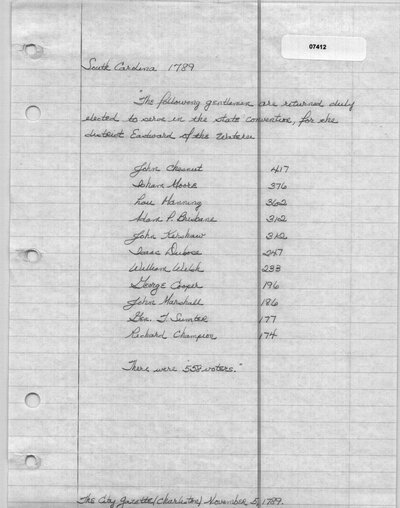 07412
South Carolina 1789
"The following gentlemen are returned duly
elected to serve in the state convention, for the
district Eastward of the Wateree
John Chesnut 417
Isham Moore 376
Lau Manning 362
Adam P. Brisbane 312
John Kershaw 312
Isaac Dubose 247
William Welsh 233
George Cooper 196
John Marshall 186
Gen. T. Sumter 177
Richard Champion 174
There were "558 voters."
The City Gazette (Charleston) November 5, 1789.